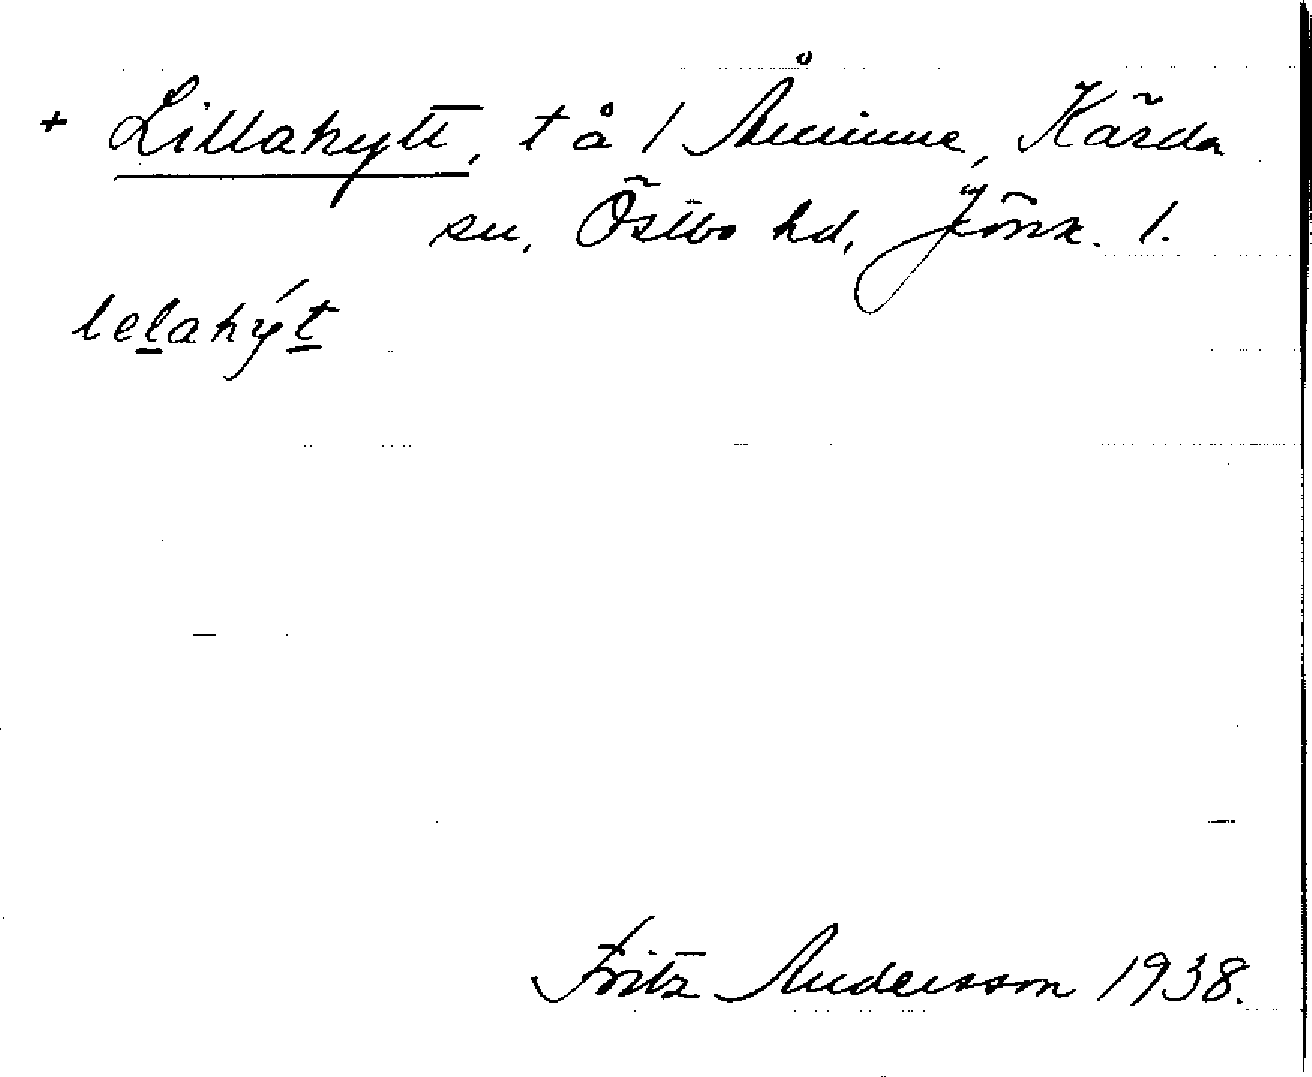 + Lillahytt, t å 1 Åminne, Kärda
sn, Östbo hd, Jönk. l.
lelahýt
Fritz Andersson 1938.